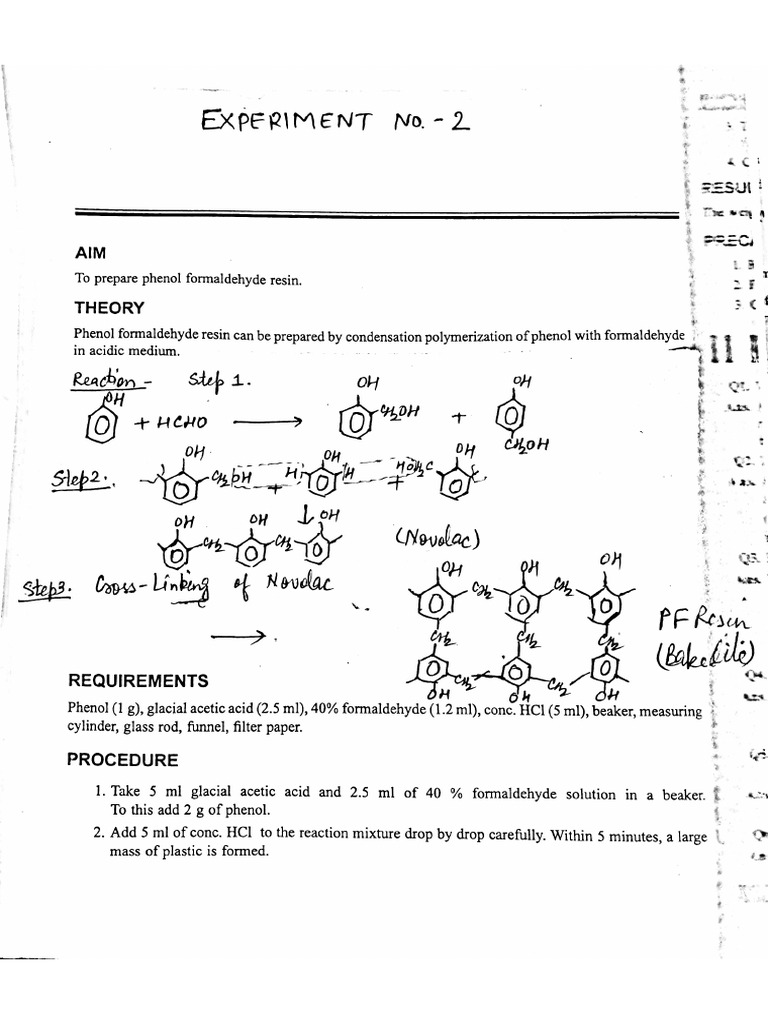 EXPERIMENT NO. - 2
AIM
To prepare phenol formaldehyde resin.
THEORY
Phenol formaldehyde resin can be prepared by condensation polymerization of phenol with formaldehyde
in acidic medium.
Reaction - Step 1.
OH OH OH
+ HCHO CH2OH +
CH2OH
OH OH OH
Step 2. CH2OH H H HOH2C
+ +
OH OH OH (Novolac)
CH2 CH2
Step 3. Cross-Linking of Novolac
OH OH OH
CH2 CH2
CH2 CH2 CH2
PF Resin
(Bakelite)
CH2 CH2
OH OH OH
REQUIREMENTS
Phenol (1 g), glacial acetic acid (2.5 ml), 40% formaldehyde (1.2 ml), conc. HCl (5 ml), beaker, measuring
cylinder, glass rod, funnel, filter paper.
PROCEDURE
1. Take 5 ml glacial acetic acid and 2.5 ml of 40 % formaldehyde solution in a beaker.
To this add 2 g of phenol.
2. Add 5 ml of conc. HCl to the reaction mixture drop by drop carefully. Within 5 minutes, a large
mass of plastic is formed.